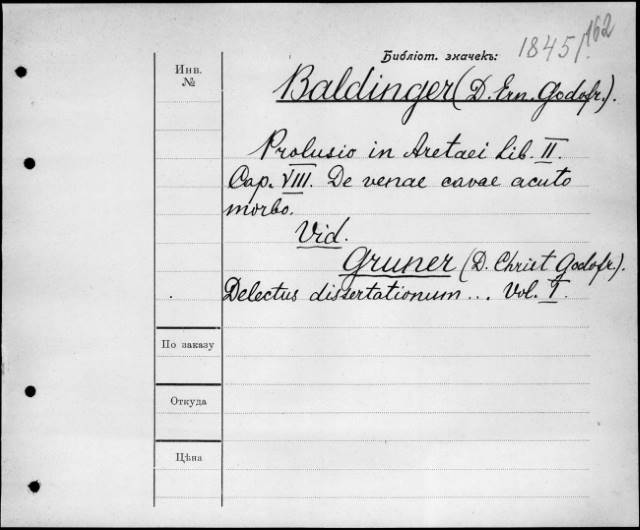 Библіот. значекъ: 1845/162
Инв. №
Baldinger (D. Ern. Godofr.).
Prolusio in Aretaei Lib. II.
Cap. VIII. De venae cavae acuto
morbo.
Vid.
Gruner (D. Christ Godofr.).
Delectus dissertationum... Vol. I.
По заказу
Откуда
Цѣна